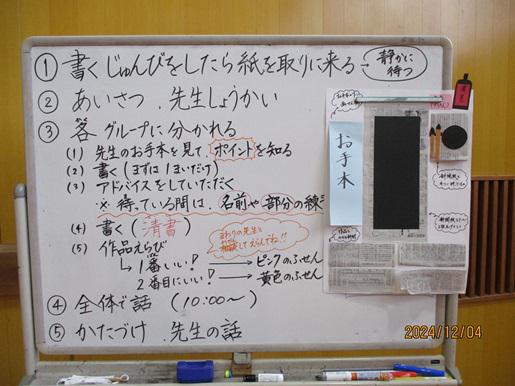 ① 書くじゅんびをしたら紙を取りに来る→静かに待つ
② あいさつ．先生しょうかい
③ 各グループに分かれる
(1) 先生のお手本を見て、ポイントを知る
(2) 書く(まずは1まいだけ)
(3) アドバイスをしていただく
※ 待っている間は、名前や部分の練
(4) 書く(清書)
(5) 作品えらび
まわりの先生と相談してえらんでね!!
1番いい! → ピンクのふせん
2番目にいい! → 黄色のふせん
④ 全体で話 (10:00～)
⑤ かたづけ 先生の話
お手本
2024/12/04